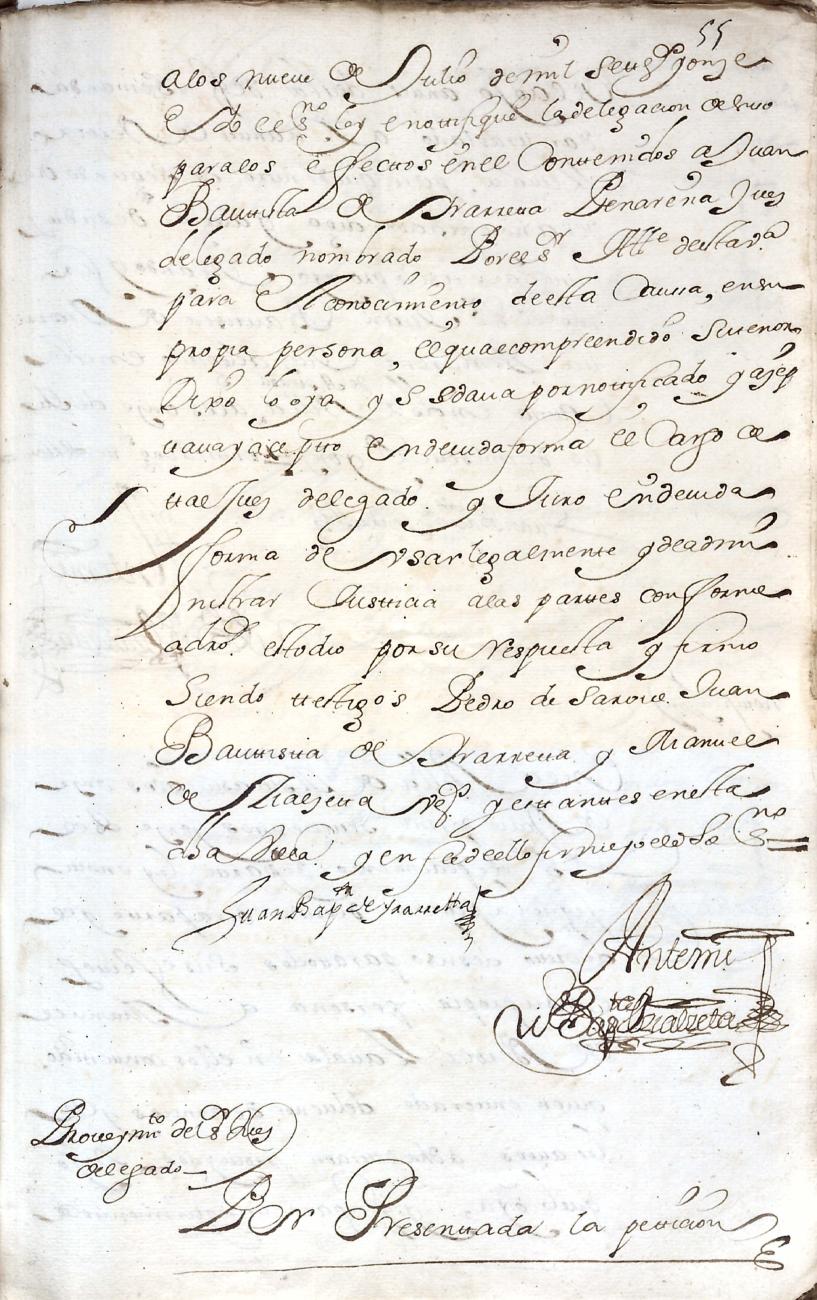 55
alos nueve de Julio de mil setezs y onze
Yo el dho ess.no ley e notifique la delegacion de suso
paralos efectos enel Contenidos a Juan
Bautista de Yrarreta Juez
delegado nombrado Por el s.r Alld.e desta
para el conocimiento deesta Causa, en su
propia persona, el qual compreendido su tenor
Dixo lo oya y se dava por notificado y azep
tava y acepto en devida forma el Cargo de
tal Juez delegado y Juro en devida
forma de usar legalmente y de admi
nistrar Justicia alas partes conforme
a dro. esto dio por su respuesta y firmo
siendo testigos Pedro de Juan
Bautista de Yrarreta y Manuel
de vez.s y estantes enesta
dha Villa y en fee dello firme yo el dho Ss.no
Juan Bap.ta de Yrarretta
Antemi
Bap.ta
Proveym.to del s.r Juez
delegado
Por Presentada la peticion